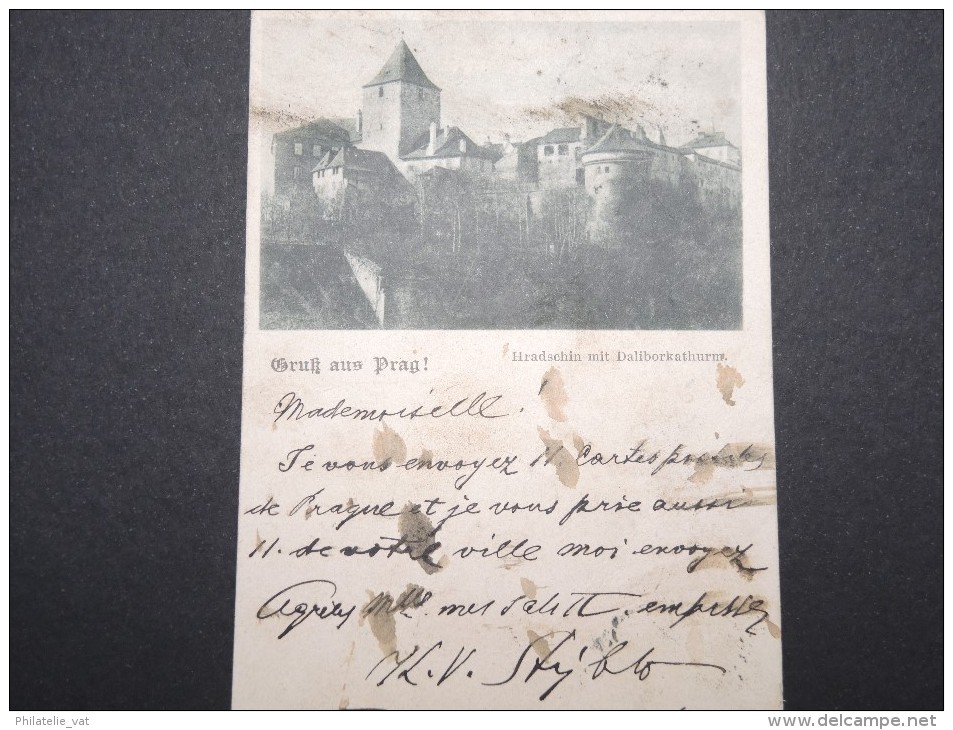 Gruß aus Prag!
Hradschin mit Daliborkathurm.
Mademoiselle.
Je vous envoyez 11. Cartes postales
de Prague et je vous prie aussi
11. de votre ville moi envoyez
Agréez Mlle mes salutt. empressez
K. V. Stýblo
Philatelie_vat
www.delcampe.net